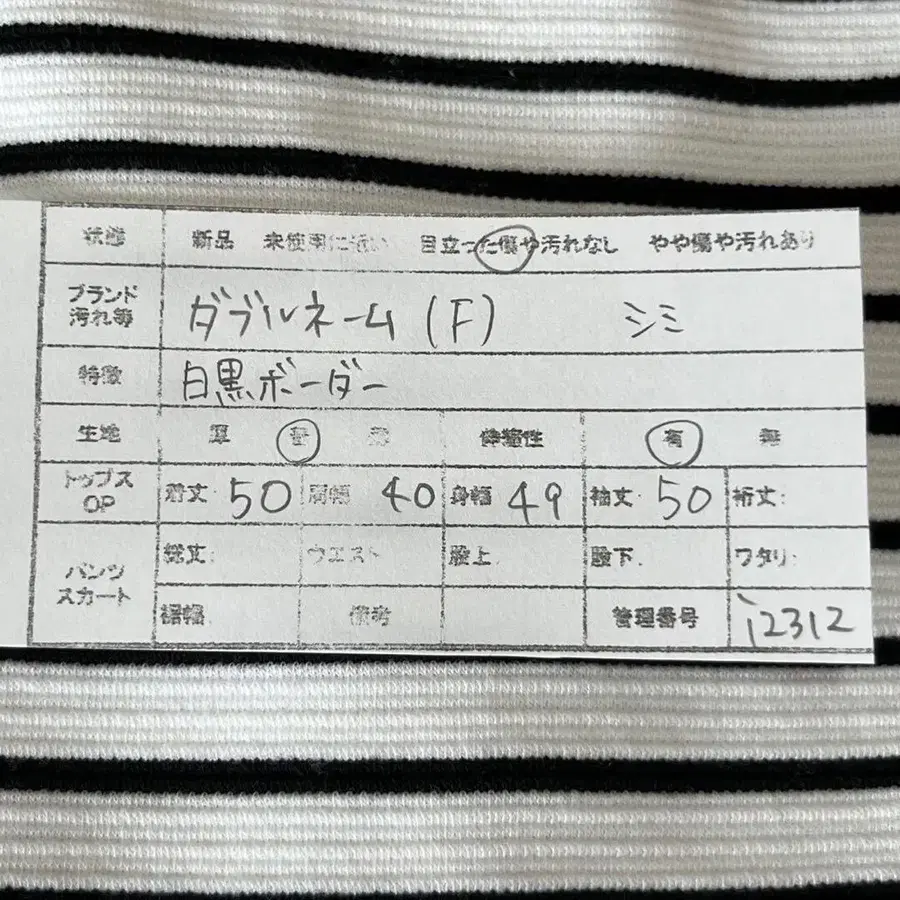 状態 新品 未使用に近い 目立った傷や汚れなし やや傷や汚れあり
ブランド
汚れ等
ダブルネーム (F) シミ
特徴 白黒ボーダー
生地 厚 普 薄 伸縮性 有 無
トップス
OP
着丈: 50 肩幅 40 身幅 49 袖丈: 50 裄丈:
パンツ
スカート
総丈: ウエスト 股上. 股下. ワタリ:
裾幅. 備考 管理番号 i2312